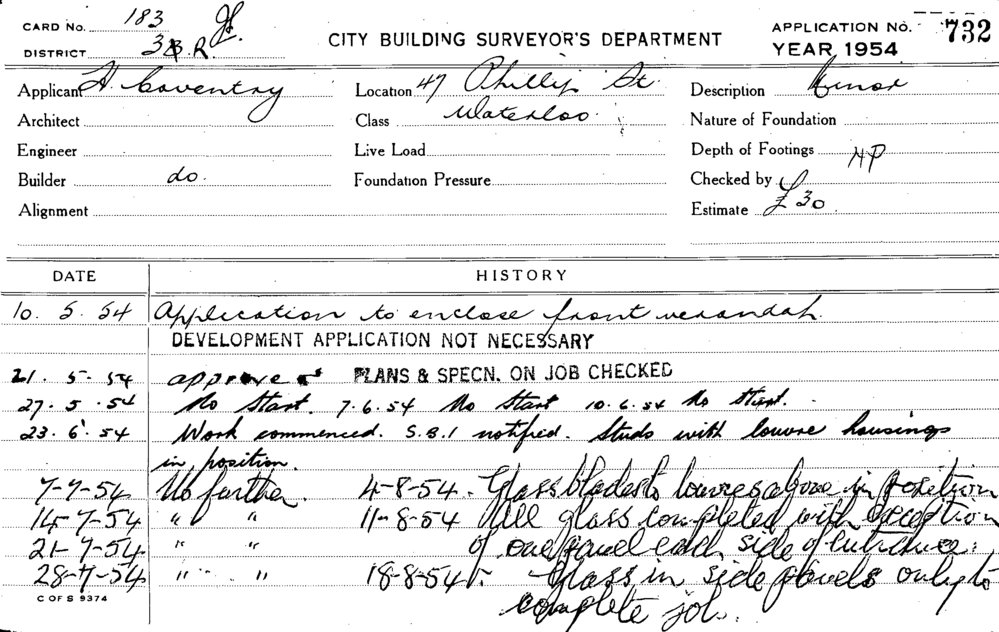 CARD NO. 183
DISTRICT 3B.R
CITY BUILDING SURVEYOR'S DEPARTMENT
APPLICATION NO. 732
YEAR, 1954
Applicant H. Coventry
Location 47 Phillip St
Description Minor
Architect
Class Waterloo
Nature of Foundation
Engineer
Live Load
Depth of Footings
Builder do.
Foundation Pressure
Checked by NP
Alignment
Estimate £30
DATE HISTORY
10. 5. 54 Application to enclose front verandah.
DEVELOPMENT APPLICATION NOT NECESSARY
21. 5. 54 approved PLANS & SPECN. ON JOB CHECKED
27. 5. 54 No Start. 7.6.54 No Start 10.6.54 No Start.
23. 6. 54 Work commenced. S.B.I notified. Studs with louvre housings
in position.
7-7-54 No further. 4-8-54. Glass blades to louvres alone in position
14-7-54 " " 11-8-54 All glass completed with exception
21-7-54 " " of one panel each side of entrance.
28-7-54 " " 18-8-54. Glass in side panels only to
complete job.
C OF S 9374